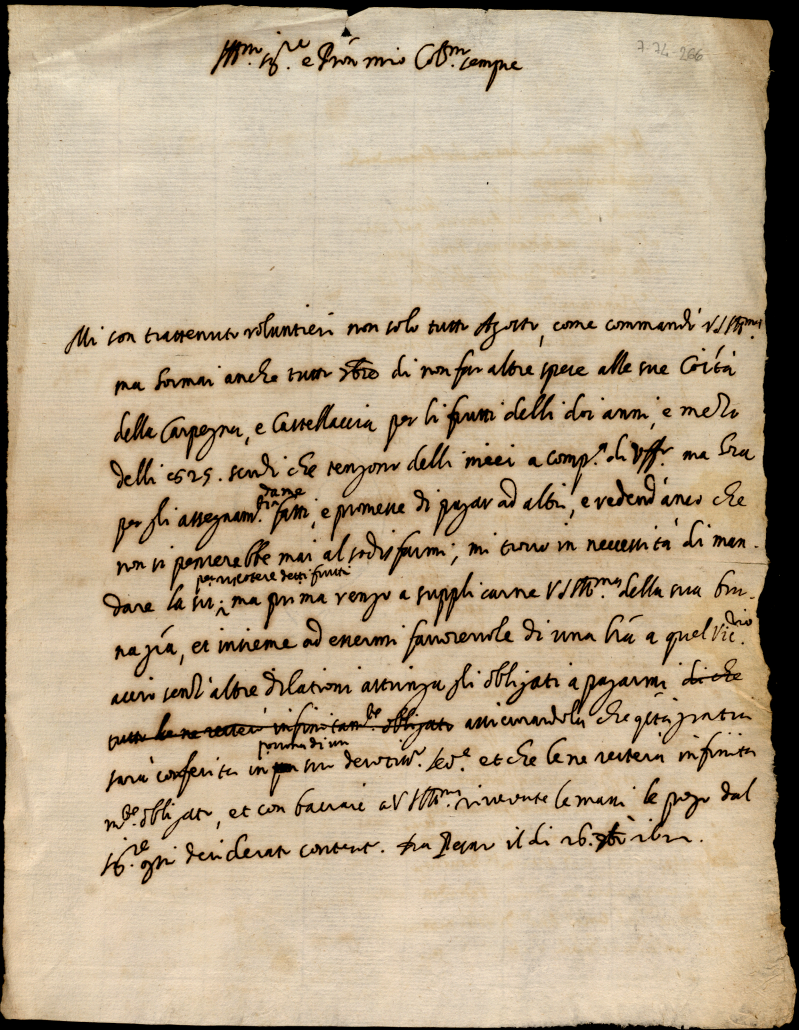 Ill.mo sig.re e Pron mio Col.mo sempre
7-74-266
Mi son trattenuto voluntieri non solo tutto Agosto, come commandò V S Ill.ma
ma hormai anche tutto 7bre di non far altre spese alle sue Co͞ità
della Carpegna, e Castellaccia per li frutti delli doi anni, e mezo
delli 1525. scudi che tengono delli miei a comp.a di uff.o ma hora
per gli assegnam.ti dame fatti, e promesse di pagar ad altri, e vedend'anco che
non si penserebbe mai al sodisfarmi; mi trovo in necessità di man-
per riscotere detti frutti
dare la su; ma prima vengo a supplicarne V S Ill.ma della sua
et insieme ad essermi favorevole di una l͞ra a quel Vic.rio
acciò senz'altre dilationi astringa gli obligati a pagarmi di che
tutto le ne resterò infinitam.te obligato assicurandola che q͞sta gratia
persona di un
sarà conferita in suo devotiss.o ser.e et che le ne resterà infinita
m.te obligato, et con baciare a V S Ill.ma rivirente le mani le prego dal
sig.re ogni desiderato contento. Da Pesaro il di 26. 7bre